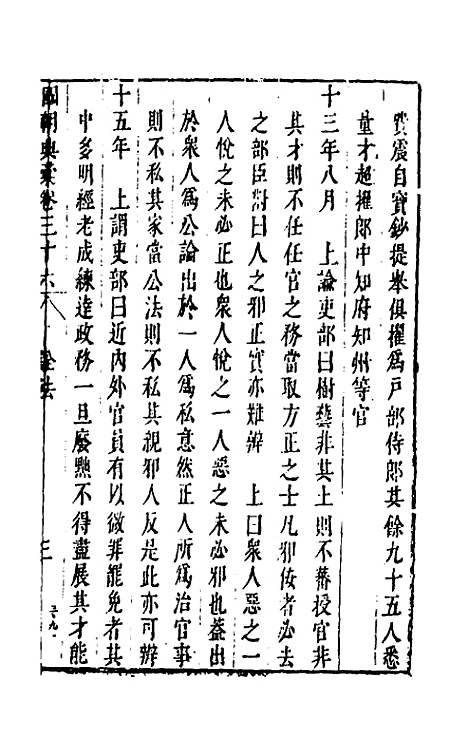 震自寶鈔提舉俱擢爲戸部侍郎其餘九十五人悉
童才超擢郎中知府知州等官
十三年八月　上諭吏部曰樹藝非其土則不蕃授官非
其才則不任任官之務當取方正之士凡邪佞者必去
之部臣對曰人之邪正實亦難辨　上曰衆人惡之一
人悅之未必正也衆人悅之一人惡之未必邪也蓋出
於衆人爲公論出於一人爲私意然正人所爲治官事
則不私其家當公法則不私其親邪人反是此亦可辨
十五年　上謂吏部曰近内外官員有以微罪罷免者其
中多明經老成練達政務一旦廢黜不得盡展其才能
國朝典彙卷三十六
三